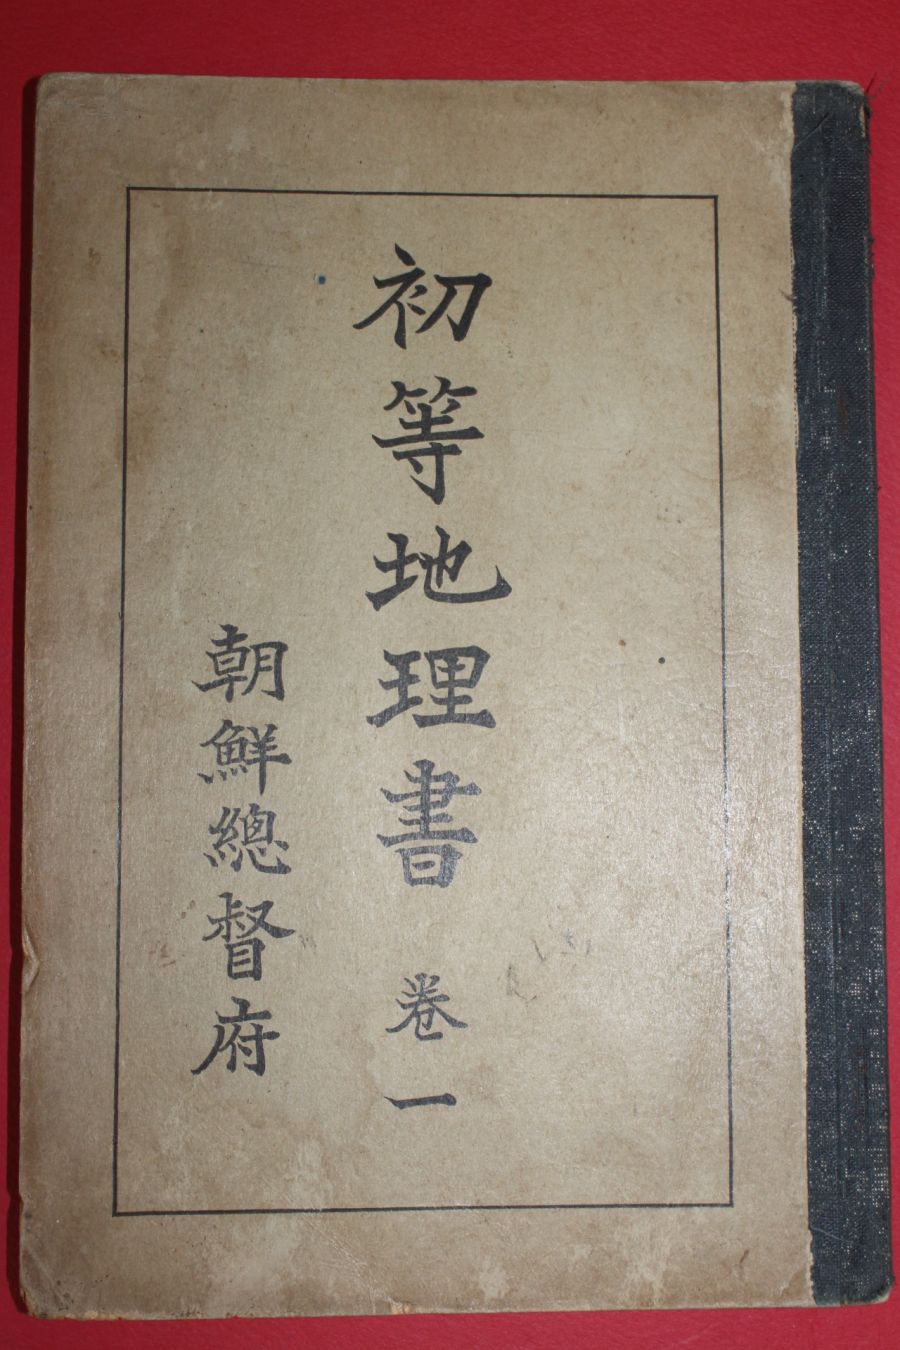 初等地理書 卷一
朝鮮總督府